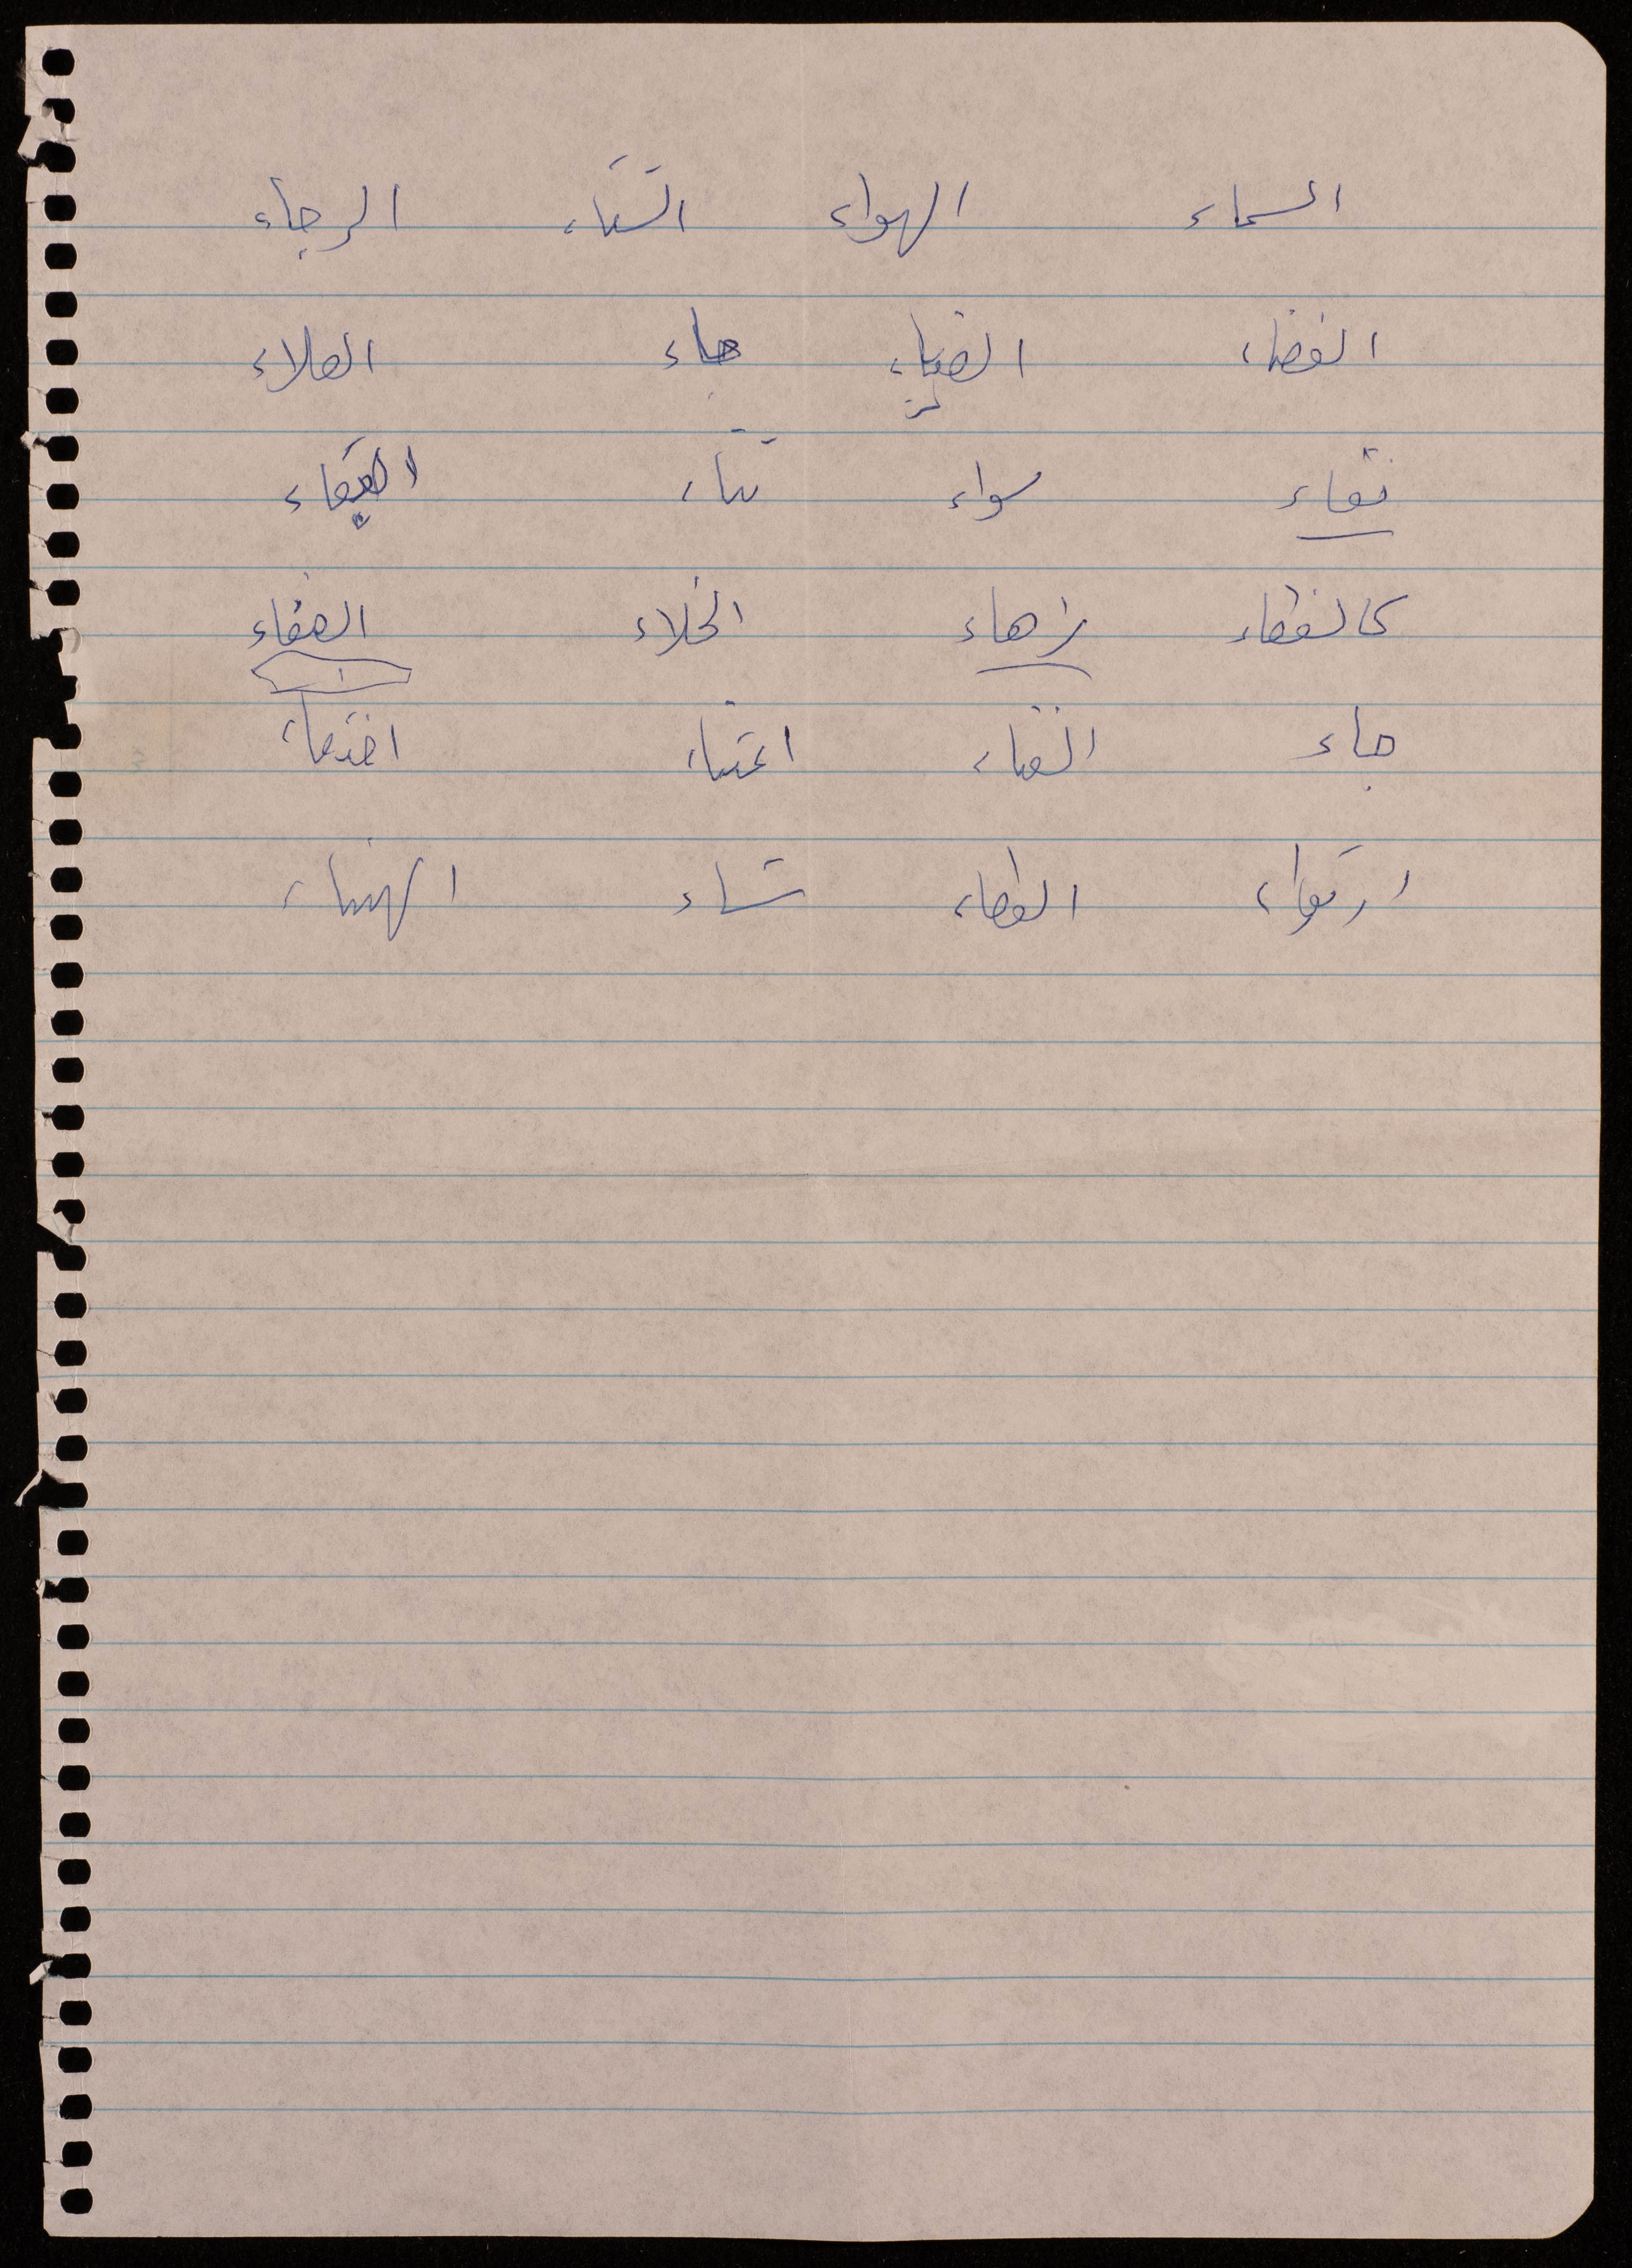 السماء الهواء الشتاء الرجاء
الفضاء الضياء جاء العلاء
نقاء سواء تشاء البقاء
كالفضاء زهاء الخلاء الصفاء
جاء الغناء اختفاء
ارتواء العطاء تشاء الهناء